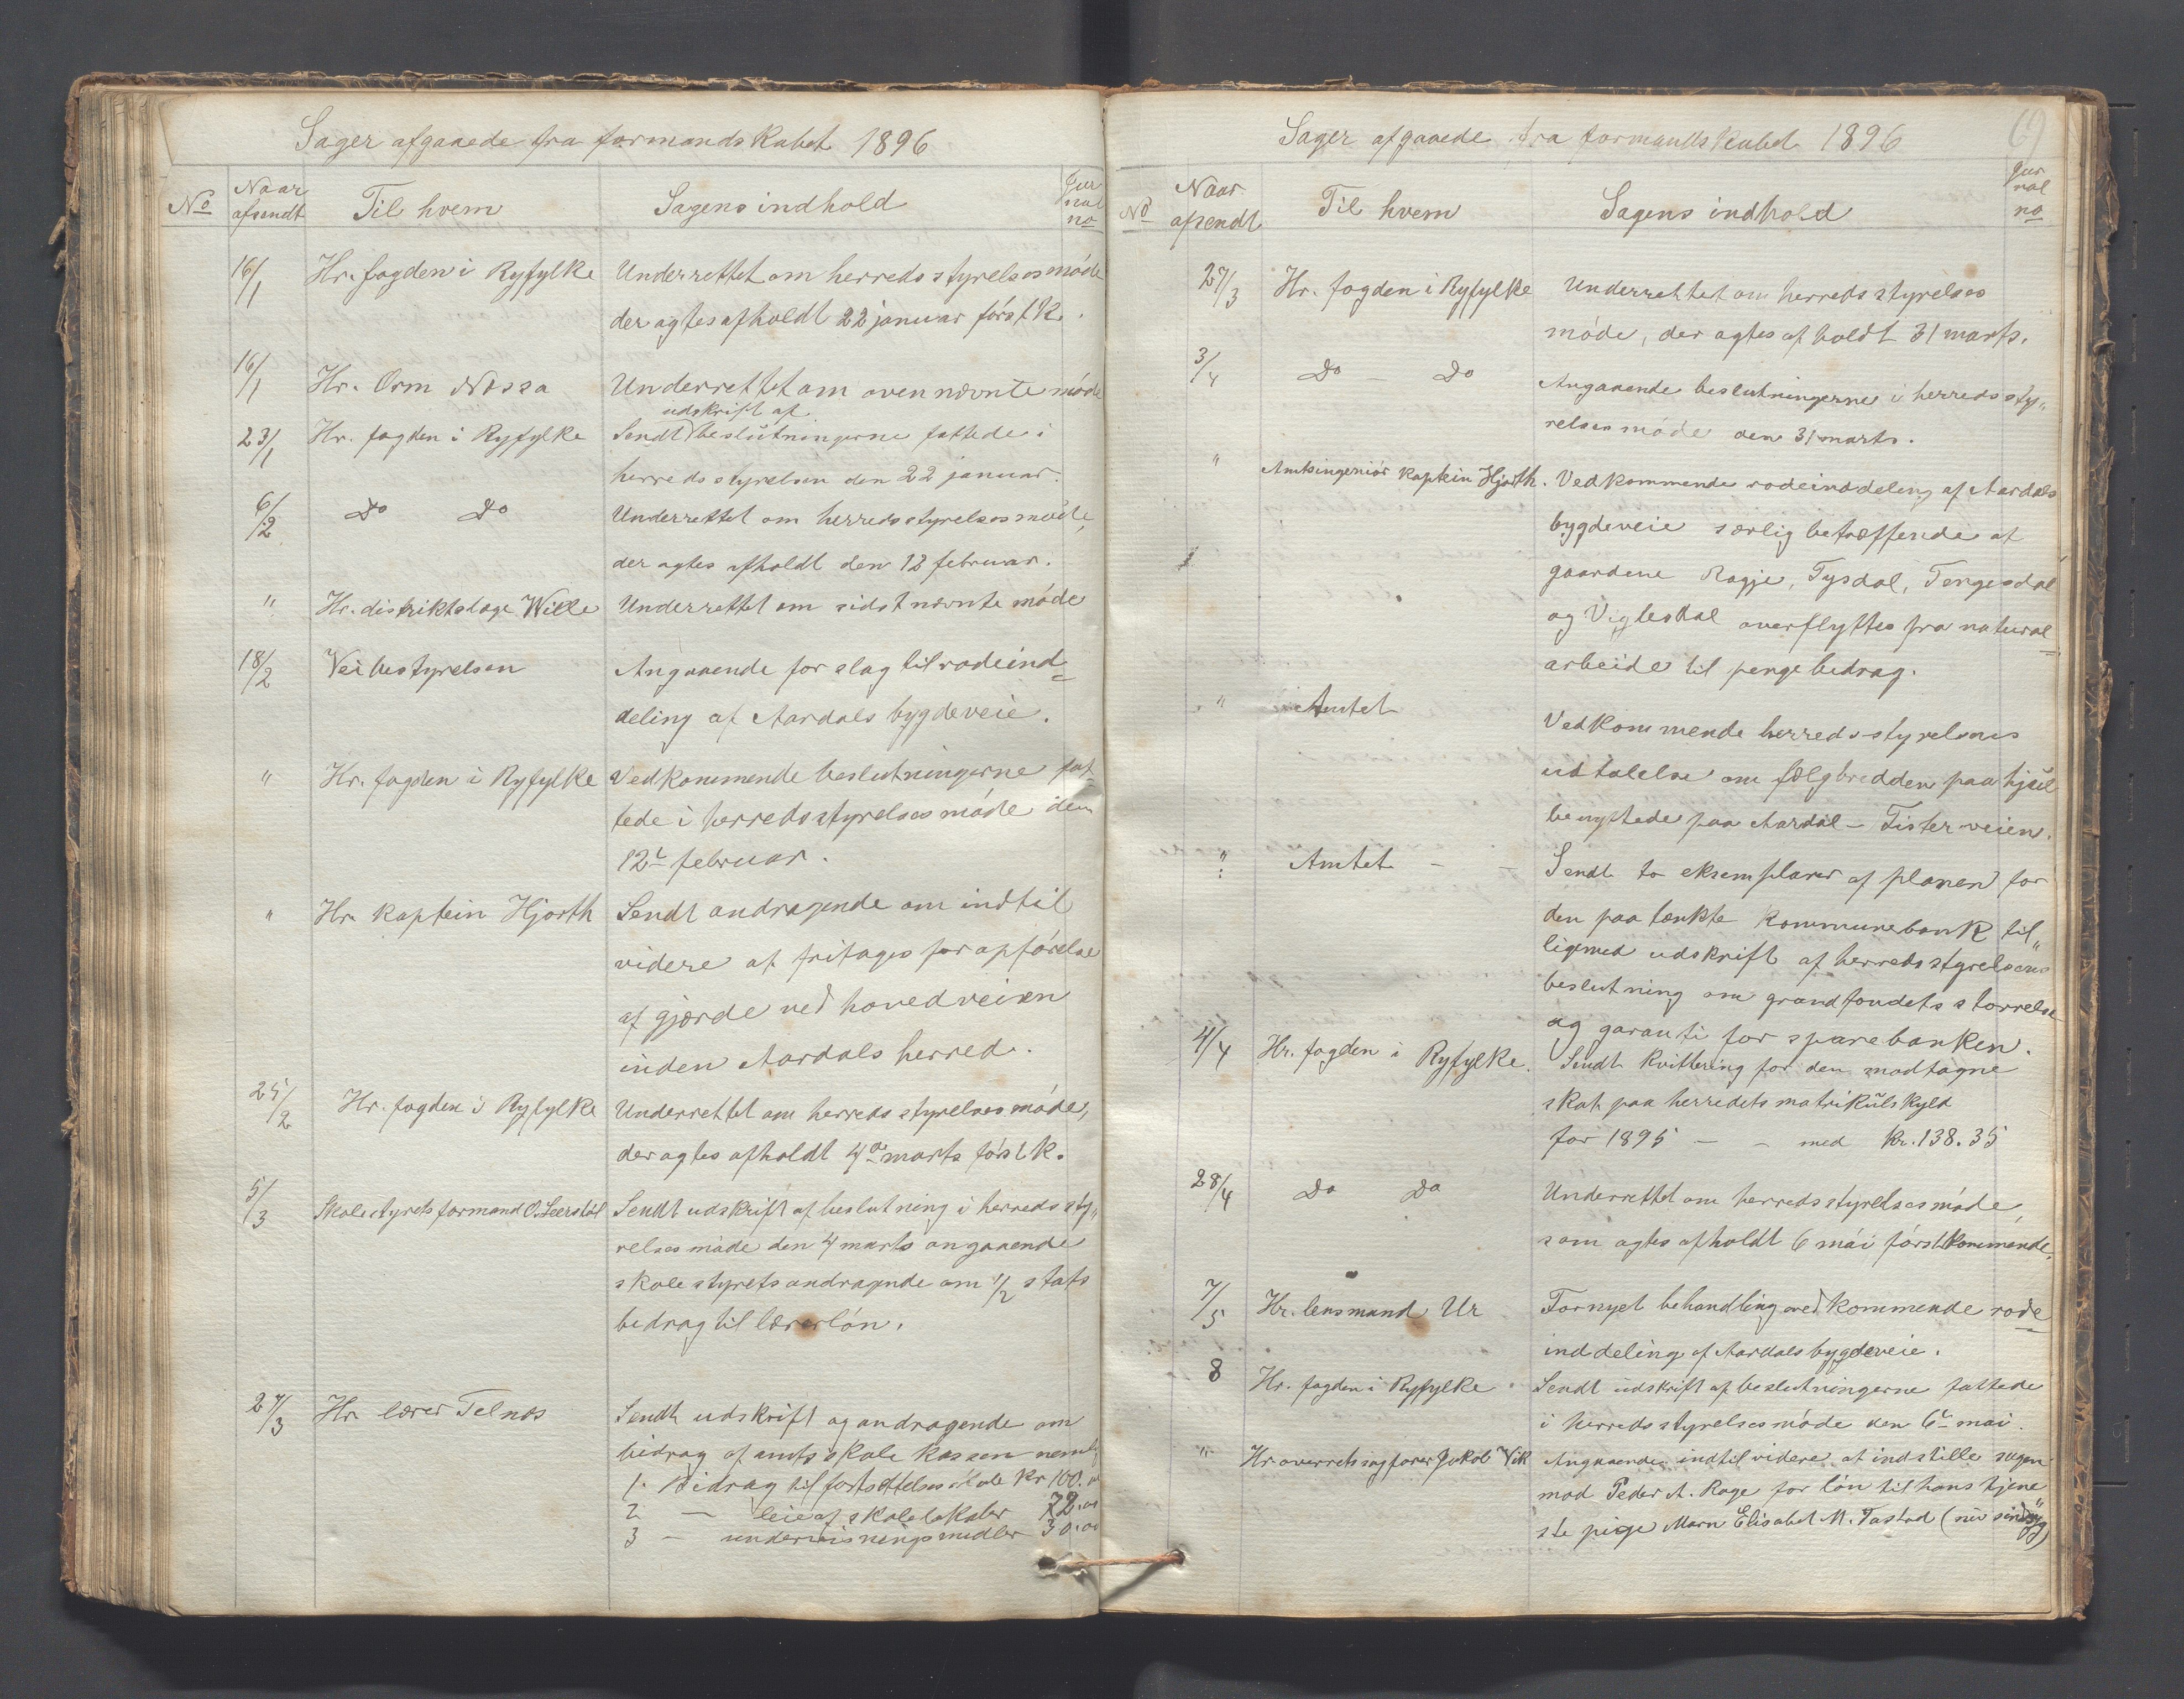 Sager afgaaede fra formandskabet 1896
No
Naar afsendt
Til hvem
Sagens indhold
Jurnal no
16/1 Hr. fogden i Ryfylke Underrettet om herredsstyrelsesmøde
der agtes afholdt 22 januar først k.
16/1 Hr. Orm Nessa Underrettet om ovennævnte møde
udskrift af
23/1 Hr. fogden i Ryfylke Sendt beslutningerne fattede i
herredsstyrelsen den 22 januar.
6/2 Do Do Underrettet om herredsstyrelsesmøde,
der agtes afholdt den 12 februar.
" Hr. distriktslæge Wille Underrettet om sidstnævnte møde
18/2 Veibestyrelsen Angaaende forslag til rodeind=
deling af Aardals bygdeveie.
" Hr. fogden i Ryfylke Vedkommende beslutningerne fat=
tede i herredsstyrelsesmøde den
12te februar.
" Hr. kaptein Hjorth Sendt andragende om indtil
videre at fritages for opførelse
af gjærde ved hovedveien
inden Aardals herred.
25/2 Hr. fogden i Ryfylke Underrettet om herredsstyrelsesmøde,
der agtes afholdt 4de marts først k.
5/3 Skolestyrets formand O. Leerstöl Sendt udskrift af beslutning i herredssty"
relsesmøde den 4 marts angaaende
skolestyrets andragende om 1/2 stats
bedrag til lærerløn.
27/3 Hr lærer Telnæs Sendt udskrift og andragende om
bidrag af amtsskolekassen neml.
1. Bidrag til fortsættelsesskole Kr 100.
2 — leie af skolelokaler 72.00
3 — undervisningsmidler 30.00
Sager afgaaede fra formandskabet 1896
69
No
Naar afsendt
Til hvem
Sagens indhold
Jurnal no
27/3 Hr. fogden i Ryfylke Underrettet om herredsstyrelses
møde, der agtes afholdt 31 marts.
3/4 Do — Do Angaaende beslutningerne i herredssty"
relsesmøde den 31 marts.
" Amtsingeniør kaptein Hjorth. Vedkommende rodeinddeling af Aardals
bygdeveie særlig betræffende at
gaardene Ragje, Tysdal, Tengesdal
og Viglesdal overflyttes fra natural=
arbeide til pengebedrag.
" Amtet Vedkommende herredsstyrelsens
udtalelse om fælgbredden paa hjul
benyttede paa Aardal - Fister veien.
" Amtet — — Sendt to eksemplarer af planen for
den paatænkte kommunebank til"
ligemed udskrift af herredsstyrelsens
beslutning om grundfondets størrelse
og garanti for sparebanken.
4/4 Hr. fogden i Ryfylke. Sendt kvittering for den modtagne
skat paa herredets matrikülskyld
for 1895 — - med Kr. 138.35
28/4 Do Do Underrettet om herredsstyrelsesmøde,
som agtes afholdt 6 mai førstkommende.
7/5 Hr. lensmand Ur Fornyet behandling vedkommende rode=
inddeling af Aardals bygdeveie.
8 Hr. fogden i Ryfylke Sendt udskrift af beslutningerne fattede
i herredsstyrelsesmøde den 6te mai.
" Hr overretssagfører Jakob Vik Angaaende indtil videre at indstille sagen
mod Peder A. Rage for løn til hans tjene"
ste pige Marn Elisabet M. Tastad (nu